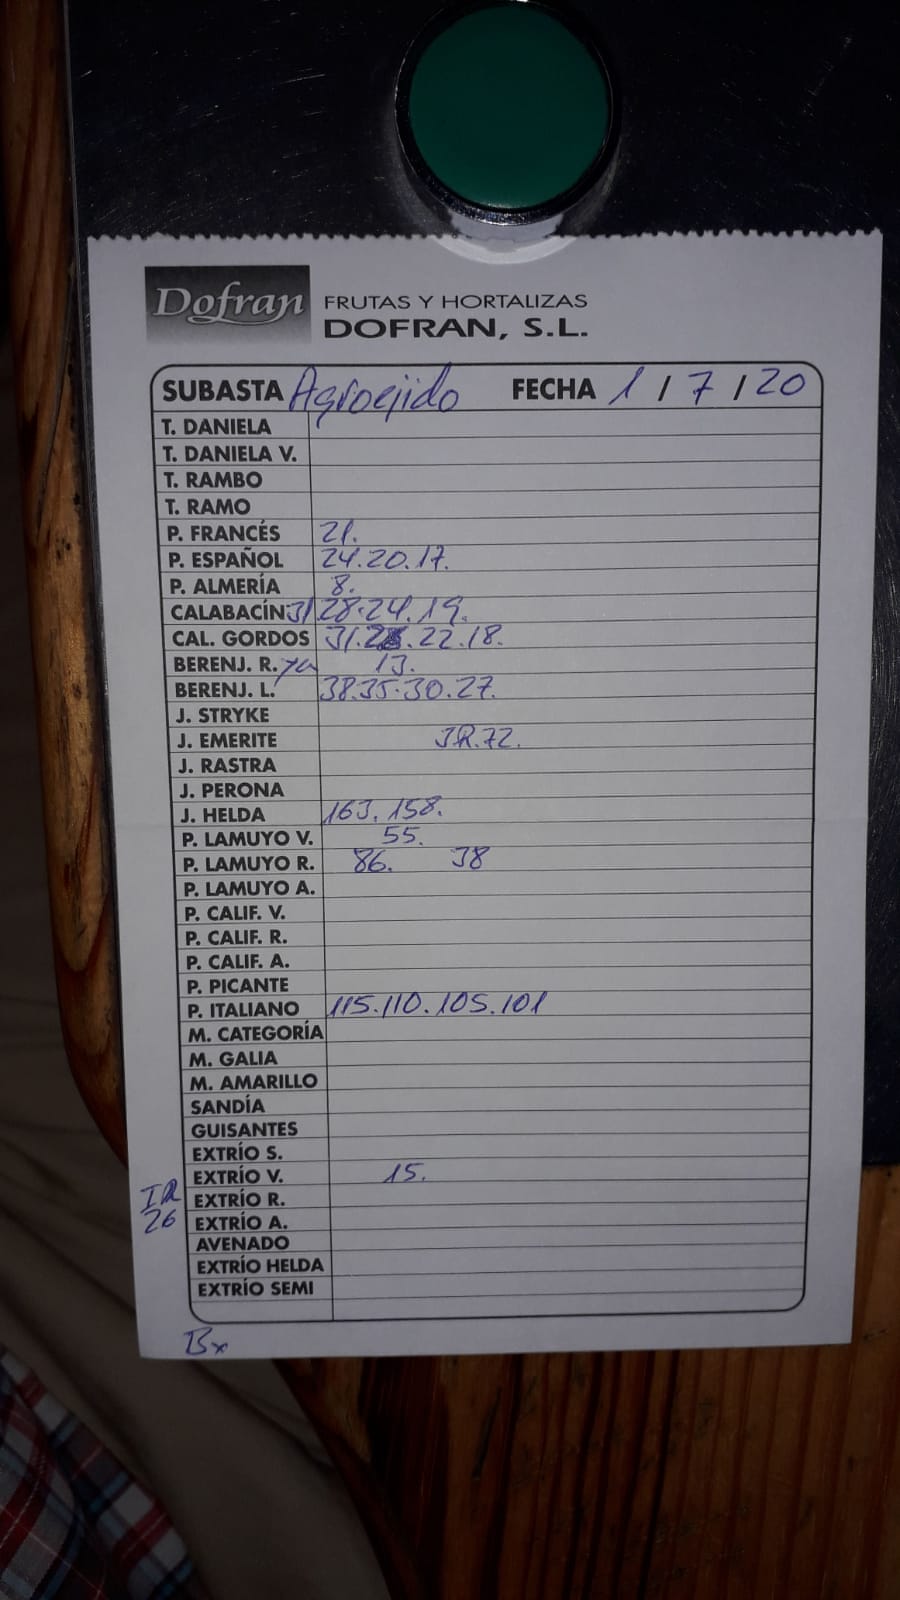 Dofran FRUTAS Y HORTALIZAS
DOFRAN, S.L.
SUBASTA Agroejido FECHA 1 / 7 / 20
T. DANIELA
T. DANIELA V.
T. RAMBO
T. RAMO
P. FRANCÉS 21.
P. ESPAÑOL 24.20.17.
P. ALMERÍA 8.
CALABACÍN 31 28.24.19.
CAL. GORDOS 31. 22.18.
BERENJ. R. 13.
BERENJ. L. 38.35.30.27.
J. STRYKE
J. EMERITE 72.
J. RASTRA
J. PERONA
J. HELDA 163.158.
P. LAMUYO V. 55.
P. LAMUYO R. 86. 38
P. LAMUYO A.
P. CALIF. V.
P. CALIF. R.
P. CALIF. A.
P. PICANTE
P. ITALIANO 115.110.105.101
M. CATEGORÍA
M. GALIA
M. AMARILLO
SANDÍA
GUISANTES
EXTRÍO S.
EXTRÍO V. 15.
EXTRÍO R.
26 EXTRÍO A.
AVENADO
EXTRÍO HELDA
EXTRÍO SEMI